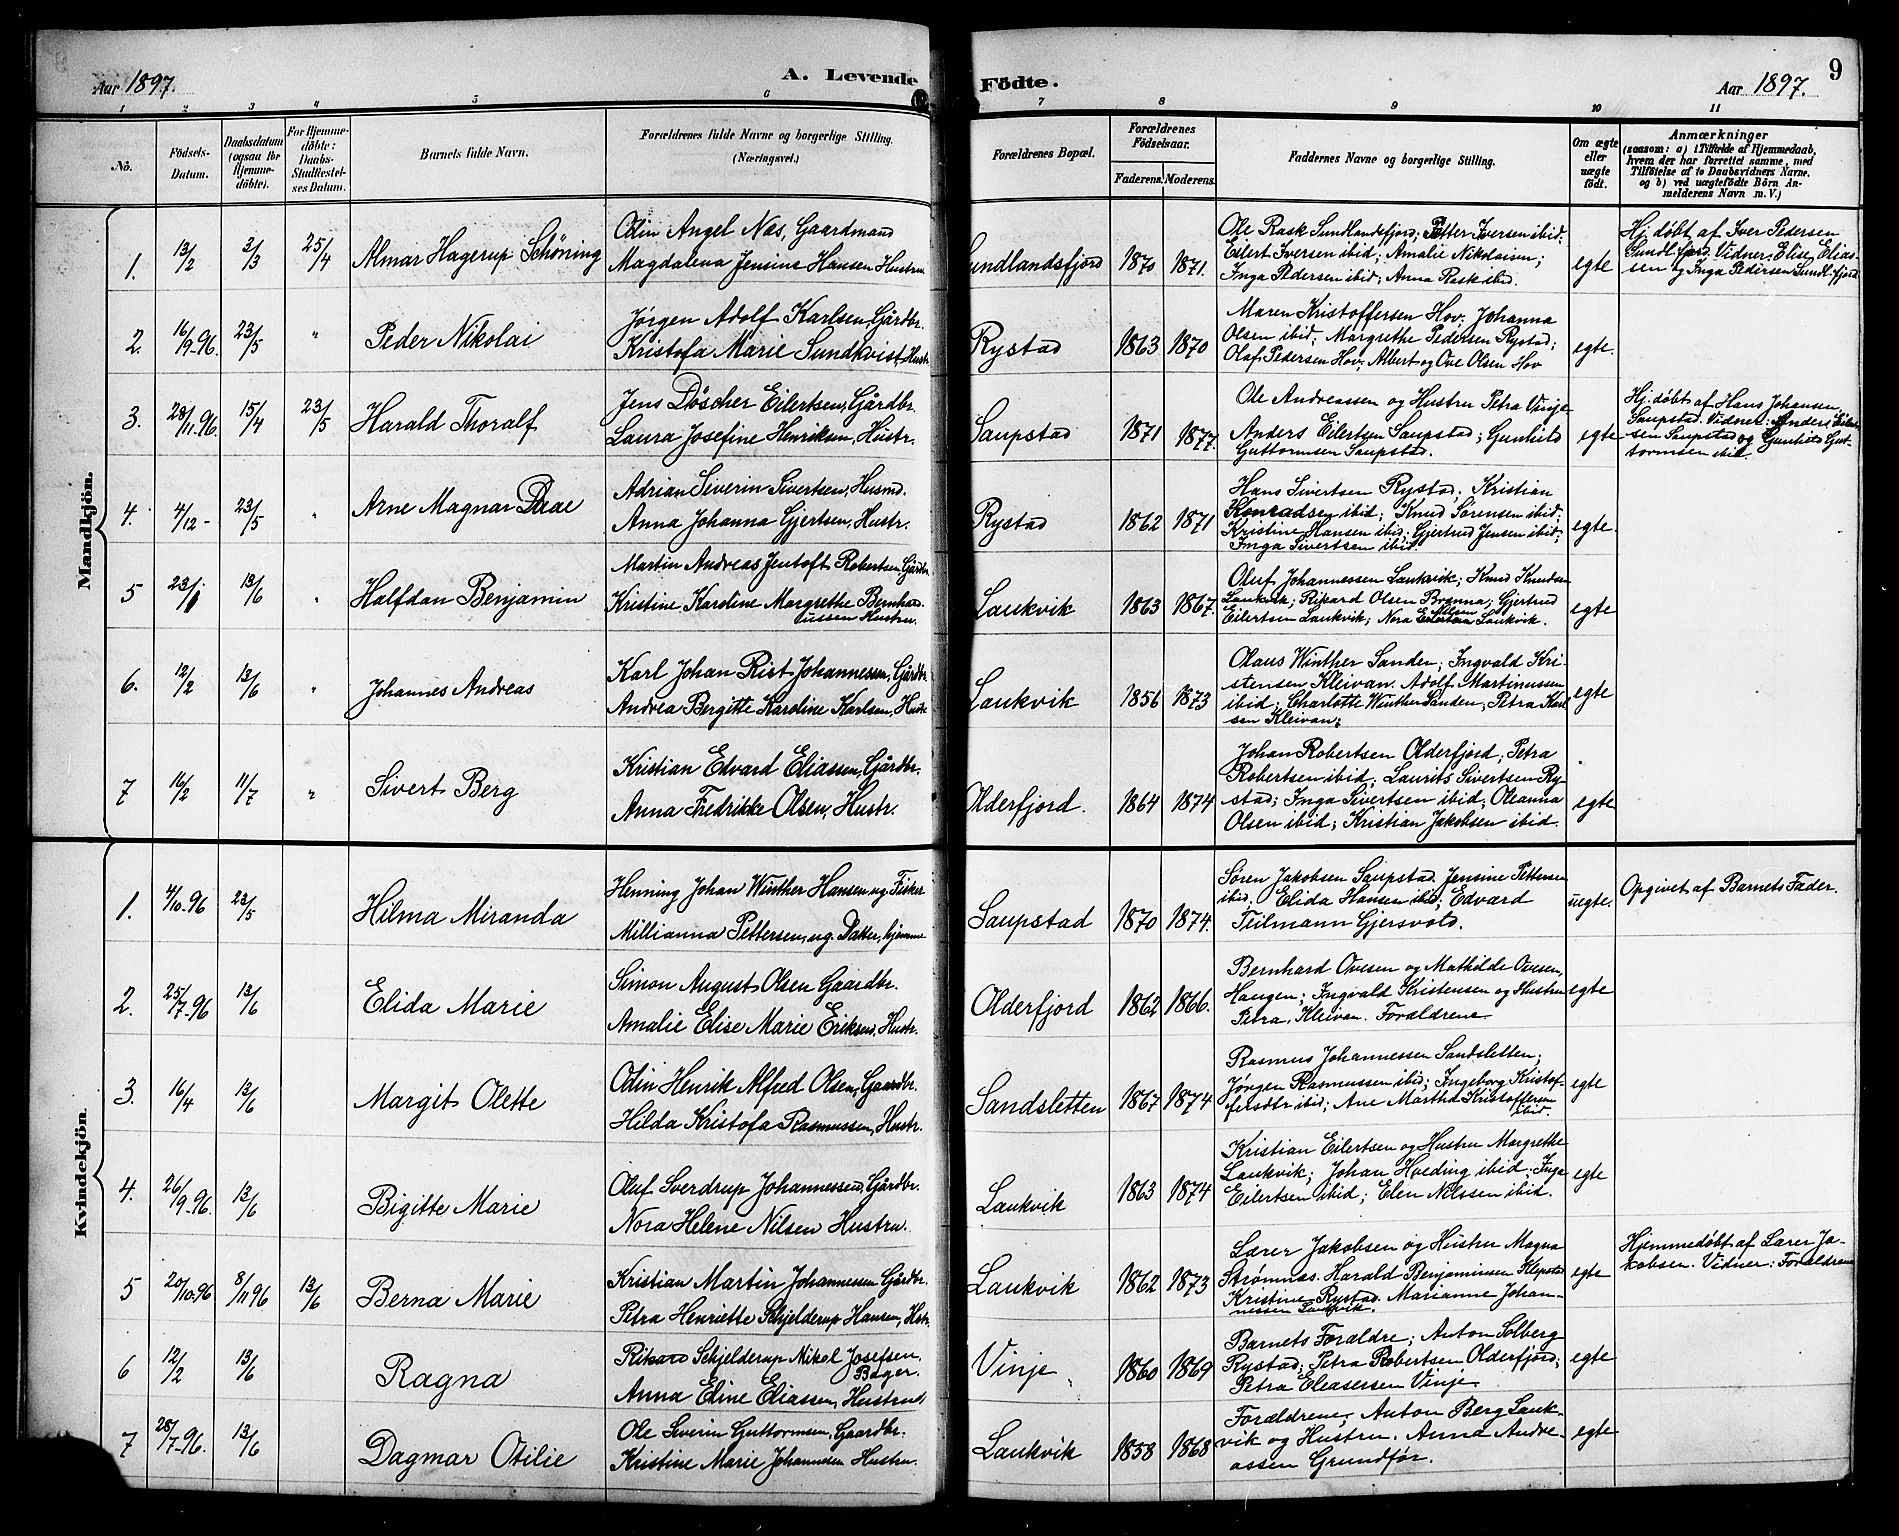 Aar 1897. A. Levende Födte. Aar 1897. 9
1 2 3 4 5 6 7 8 9 10 11
No. Födsels-Datum. Daabsdatum (ogsaa for Hjemmedöbte). For Hjemmedöbte: Daabs-Stadfæstelses Datum. Barnets fulde Navn. Forældrenes fulde Navne og borgerlige Stilling. (Næringsvei.) Forældrenes Bopæl. Forældrenes Födselsaar. Faderens. Moderens. Faddernes Navne og borgerlige Stilling. Om ægte eller uægte födt. Anmærkninger (saasom: a) i Tilfælde af Hjemmedaab, hvem der har forrettet samme, med Tilföielse af to Daabsvidners Navne. og b) ved uægtefödte Börn Anmelderens Navn m. V.)
Mandkjön.
1. 13/2 3/3 25/4 Almar Hagerup Schöning
Odin Angel Næs, Gaardmand
Magdalena Jensine Hansen Hustru
Sundlandsfjord 1870 1871.
Ole Rask Sundlandsfjord; Petter Iversen ibid.
Eilert Iversen ibid; Amalie Nikolaisen;
Inga Pedersen ibid; Anna Rask ibid.
egte
Hj. döbt af Iver Pedersen
Sundl.fjord. Vidner: Elise Elias-
sen og Inga Pedersen Sundl.fjord
2. 16/9-96. 23/5 " Peder Nikolai
Jørgen Adolf Karlsen, Gårdbr.
Kristofa Marie Sundkvist, Hustr.
Rystad 1863 1870
Maren Kristoffersen Hov. Johanna
Olsen ibid; Margrethe Pedersen Rystad;
Olaf Pedersen Hov; Albert og Ove Olsen Hov
egte.
3. 28/11.96. 15/4 23/5 Harald Thoralf
Jens Döscher Eilertsen, Gårdbr.
Laura Josefine Henriksen, Hustr.
Saupstad 1871 1877.
Ole Andreassen og Hustru Petra Vinje
Anders Eilertsen Saupstad; Gunhild
Guttormsen Saupstad.
egte
Hj. döbt af Hans Johansen
Saupstad. Vidner: Anders Eilert-
sen Saupstad og Gunhild Gut-
tormsen ibid.
4. 4/12 - 23/5 " Arne Magnar Daae
Adrian Severin Sivertsen, Husmd.
Anna Johanna Gjertsen, Hustr.
Rystad 1862 1871
Hans Sivertsen Rystad; Kristian
Konradsen ibid; Knud Sörensen ibid;
Kristine Hansen ibid; Gjertrud Jensen ibid;
Inga Sivertsen ibid
egte.
5 23/1 13/6 " Halfdan Benjamin
Martin Andreas Jentoft Robertsen, Gårdbr.
Kristine Karoline Margrethe Bernhard-
tussen Hustru.
Laukvik 1863 1867.
Oluf Johannessen Laukvik; Knud Knudsen
Laukvik; Rikard Olsen Brenna; Gjertrud
Eilertsen Laukvik; Nora Nilsen Laukvik.
egte
6. 12/2 13/6 " Johannes Andreas
Karl Johan Rist Johannessen, Gårdbr.
Andrea Bergitte Karoline Karlsen, Hustr
Laukvik 1856 1873
Olaus Winther Sanden; Ingvald Kri-
stensen Kleivan. Adolf Martinussen
ibid; Charlotte Winther Sanden; Petra Karl-
sen Kleivan;
egte
7 16/2 11/7 " Sivert Berg
Kristian Edvard Eliassen, Gårdbr.
Anna Fredrikke Olsen, Hustr.
Olderfjord. 1864 1874
Johan Robertsen Olderfjord; Petra
Robertsen ibid; Laurits Sivertsen Ry-
stad; Inga Sivertsen ibid; Oleanna
Olsen ibid; Kristian Jakobsen ibid.
egte
Kvindekjön.
1. 4/10.96 23/5 Hilma Miranda
Henning Johan Winther Hansen, ug. Fisker
Millianna Pettersen, ug. Datter, hjemme
Saupstad 1870 1874.
Sören Jakobsen Saupstad. Jensine Pettersen
ibid; Elida Hansen ibid; Edvard
Tiilmann Gjersvold.
uegte.
Opgivet af Barnets Fader.
2. 25/7-96 13/6 Elida Marie
Simon August Olsen Gaardbr.
Amalie Elise Marie Eriksen, Hustr.
Olderfjord 1862 1866.
Bernhard Ovesen og Mathilde Ovesen,
Haugen; Ingvald Kristensen og Hustru
Petra, Kleivan. Forældrene
egte
3. 16/4 13/6 Margit Olette
Odin Henrik Alfred Olsen, Gaardbr.
Hilda Kristofa Rasmussen, Hustr.
Sandsletten 1867 1874
Rasmus Johannessen Sandsletten;
Jörgen Rasmussen ibid; Ingeborg Kristof-
fersdtr ibid; Ane Martha Kristoffersen
ibid.
egte
4. 26/9-96. 13/6 Bigitte Marie
Oluf Sverdrup Johannessen, Gårdbr.
Nora Helene Nilsen Hustru.
Laukvik 1863 1874
Kristian Eilertsen og Hustru Margrethe
Laukvik; Johan Hveding ibid; Inga
Eilertsen ibid; Elen Nilssen ibid.
egte
5 20/10.96 8/11 96 13/6 Berna Marie
Kristian Martin Johannesen Gårdbr.
Petra Henriette Schjelderup Hansen, Hstr.
Laukvik 1862 1873
Lærer Jakobsen og Hustru Magna
Strømnæs. Harald Benjaminsen Klepstad
Kristine Rystad. Marianne Johan-
nessen Laukvik.
egte
Hjemmedöbt af Lærer Ja-
kobsen. Vidner: Forældrene
6 12/2 13/6 Ragna
Rikard Schjelderup Nikol Josefsen,
Bager.
Anna Eline Eliassen, Hustru
Vinje 1860 1869
Barnets Forældre; Anton Solberg
Rystad; Petra Robertsen Olderfjord;
Petra Eleasersen Vinje
egte
7 28/7-96. 13/6 Dagmar Otilie
Ole Severin Guttormsen, Gaardbr.
Kristine Marie Johannesen Hustru.
Laukvik 1858 1868
Forældrene; Anton Berg Lauk-
vik og Hustru. Anna Andre-
assen Grundför.
egte